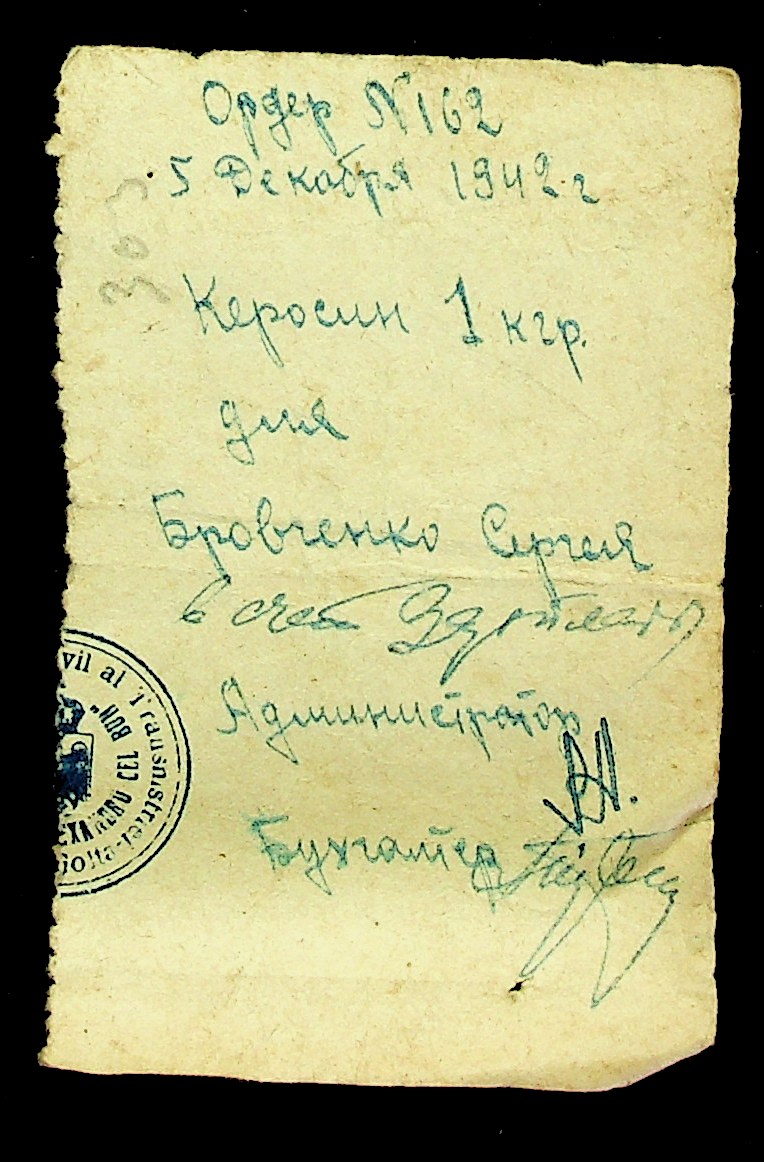 Ордер N 162
5 Декабря 1942 г
303
Керосин 1 кгр.
для
Бровченко Сергея
в счет Зарплаты
Администратор
Бухгалтер
vil al Transnistriei
XANDRU CEL BUN"